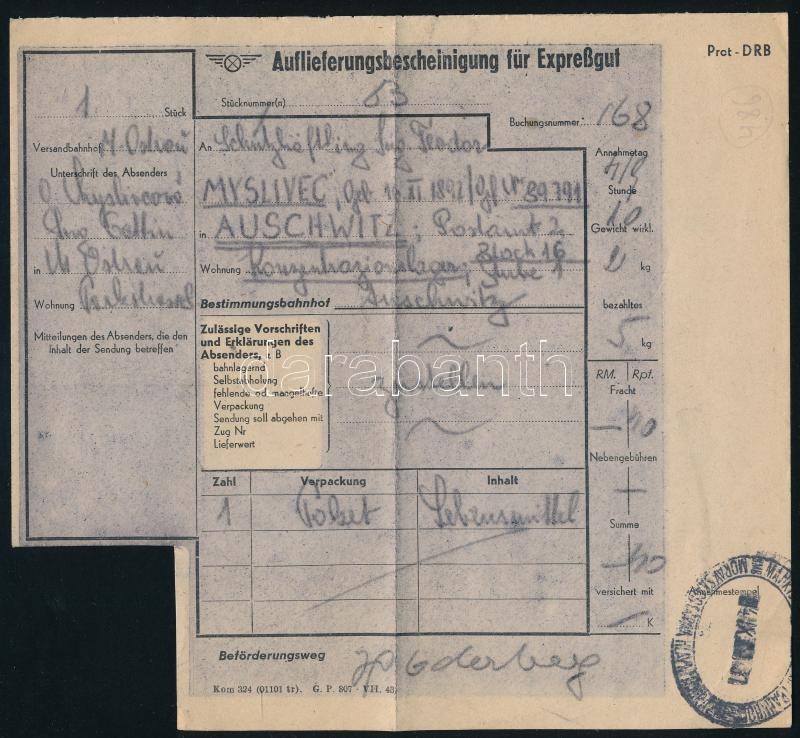 Prot - DRB
Auflieferungsbescheinigung für Expreßgut
1 Stück
Stücknummer(n) 53
Buchungsnummer: 168
Versandbahnhof M. Ostrau
An Schutzhäftling Ing. Teodor
Annahmetag
Unterschrift des Absenders
MYSLIVEC
Nr 39.791
Stunde
10
in AUSCHWITZ; Postamt 2
Gewicht wirkl.
kg
in M. Ostrau
Block 16
Wohnung Konzentrazionslager, Stube 1
Wohnung
Bestimmungsbahnhof Auschwitz
bezahltes
5 kg
Mitteilungen des Absenders, die den
Inhalt der Sendung betreffen
Zulässige Vorschriften
und Erklärungen des
Absenders, z. B
bahnlagernd
Selbstabholung
fehlende od. mangelhafte
Verpackung
Sendung soll abgehen mit
Zug Nr
Lieferwert
zustellen
darabanth
RM. Rpf.
Fracht
— 40
Nebengebühren
—
Summe
— 40
versichert mit
K
Zahl Verpackung Inhalt
1 Paket Lebensmittel
Beförderungsweg Oderberg
Kom 324 (01101 tr). G. P. 807 - VII. 43.
984